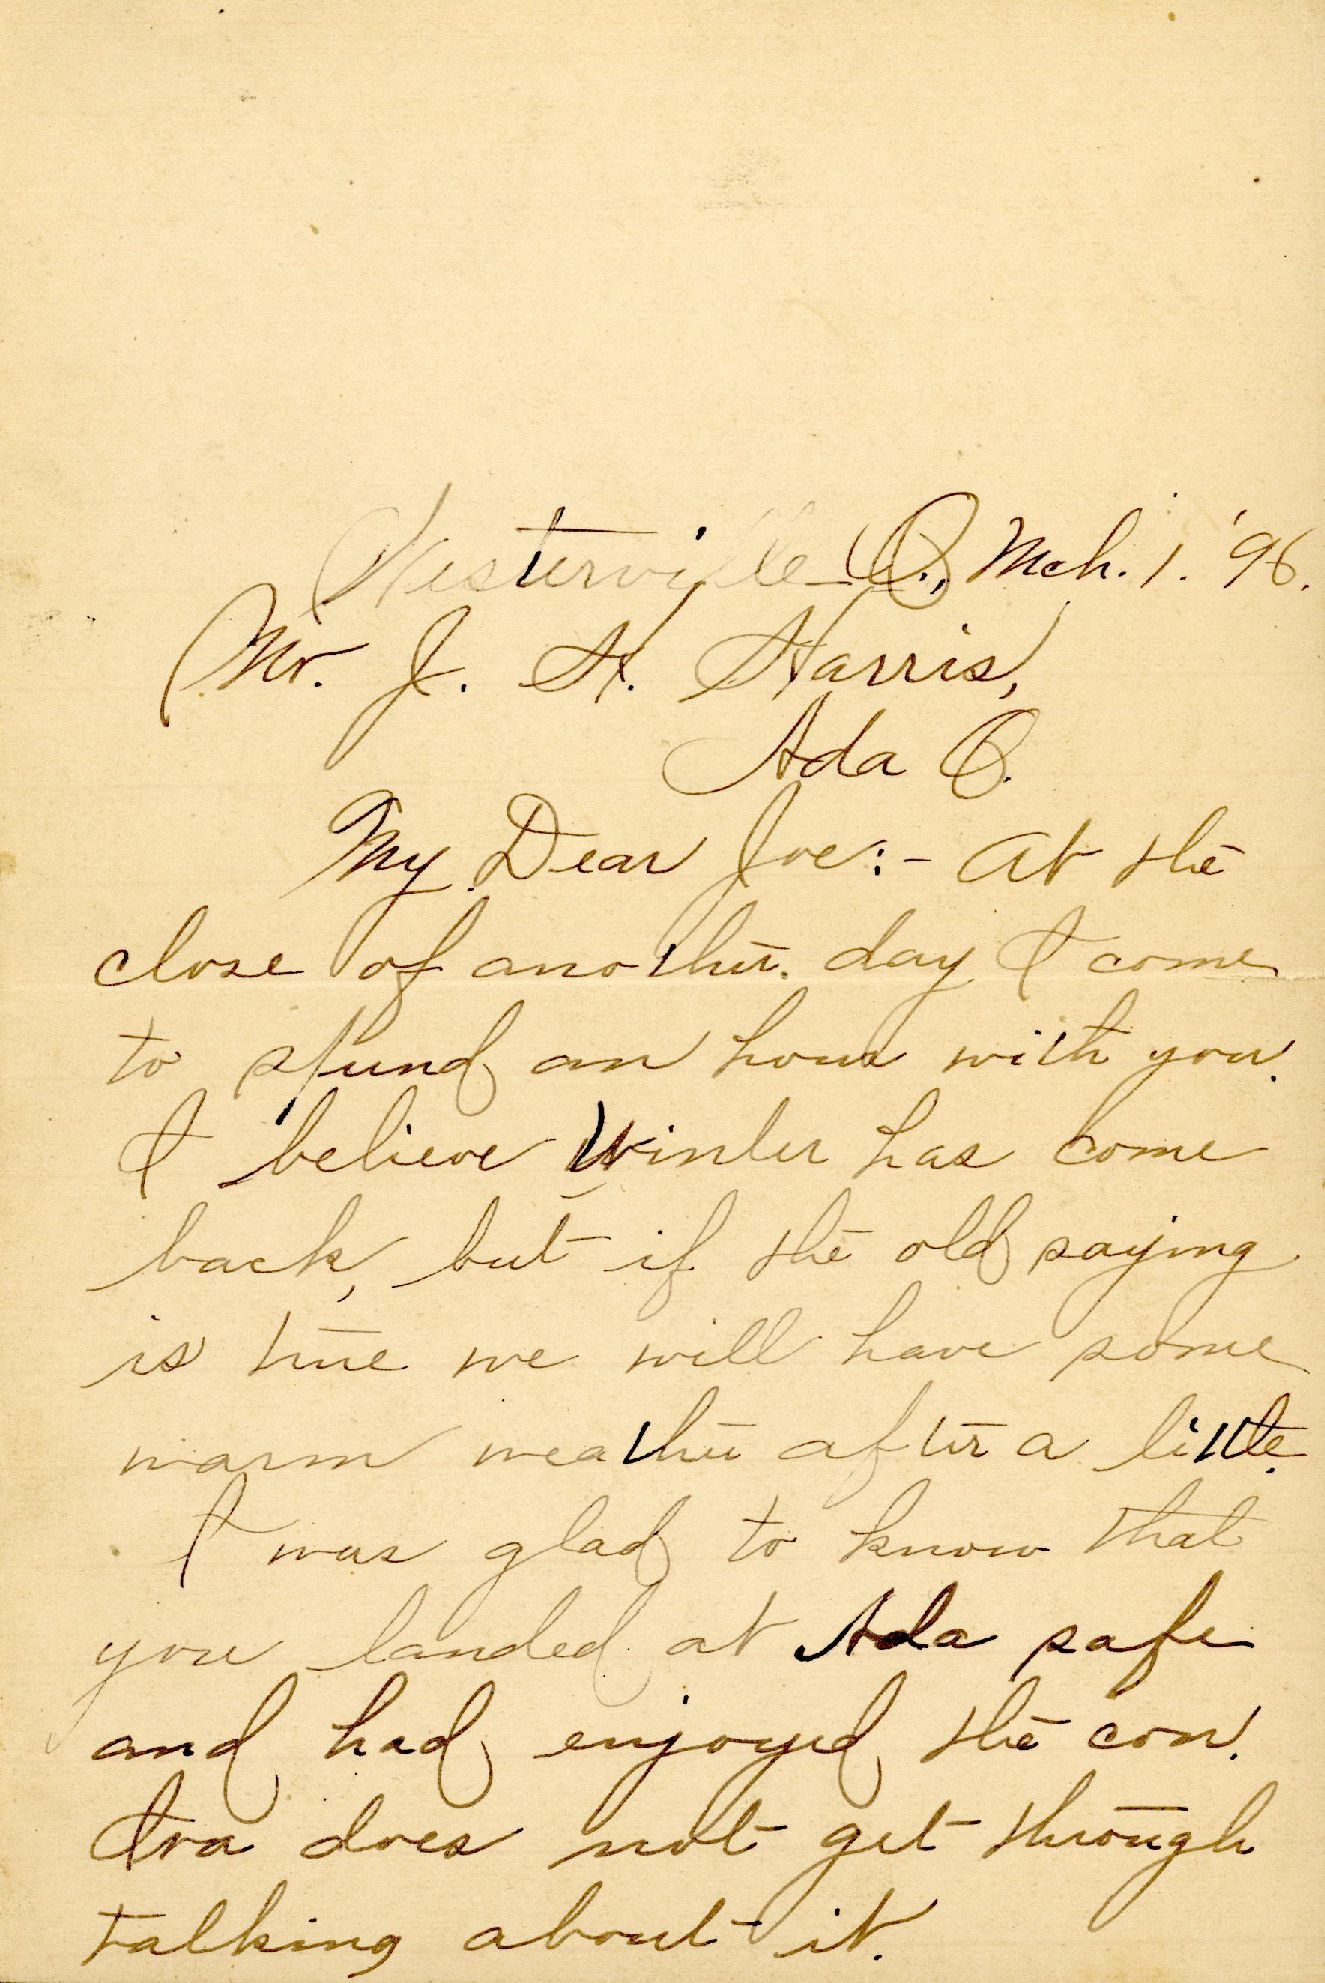 Westerville O., Mch. 1. '96.
Mr. J. H. Harris,
Ada O.
My Dear Joe:- At the
close of another day I come
to spend an hour with you.
I believe Winter has come
back, but if the old saying
is true we will have some
warm weather after a little.
I was glad to know that
you landed at Ada safe
and had enjoyed the con.
Ira does not get through
talking about it.